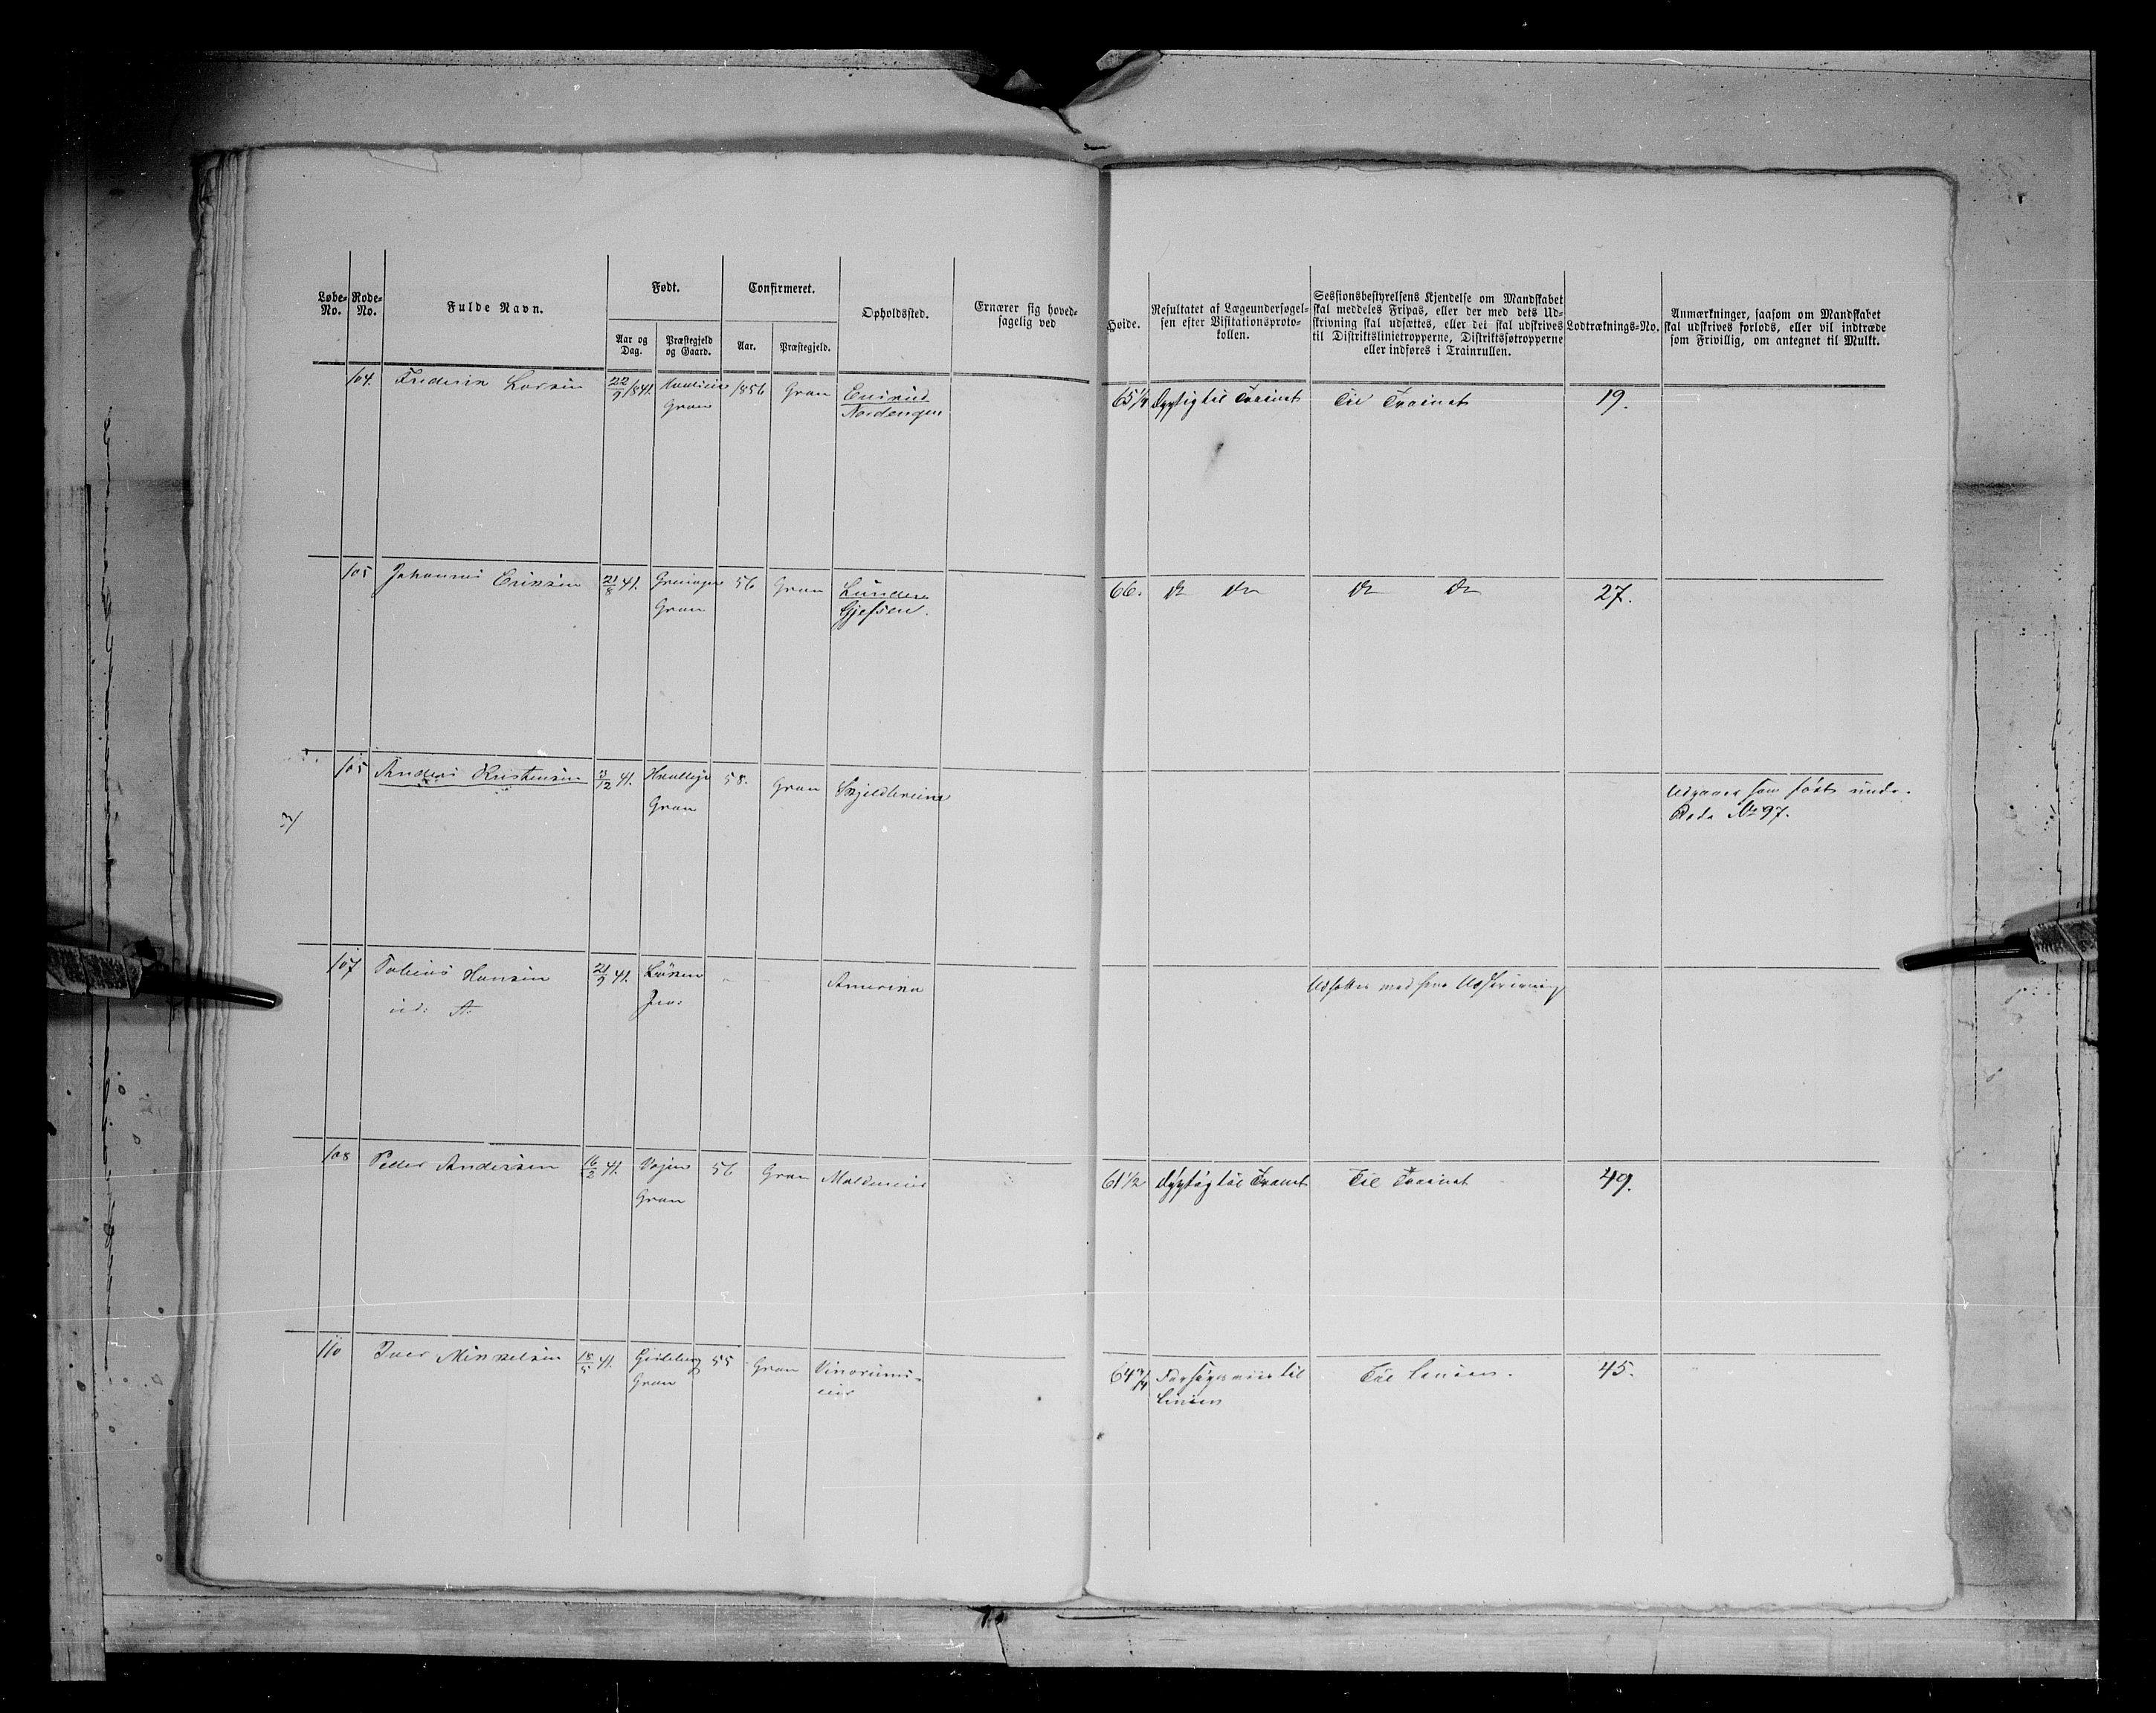 Løbe-No.
Rode-No.
Fulde Navn.
Født.
Aar og Dag.
Præstegjeld og Gaard.
Confirmeret.
Aar.
Præstegjeld.
Opholdssted.
Ernærer sig hoved-
sagelig ved
Høide.
Resultatet af Lægeundersøgel-
sen efter Visitationsproto-
kollen.
Sessionsbestyrelsens Kjendelse om Mandskabet
skal meddeles Fripas, eller der med dets Ud-
skrivning skal udsættes, eller det skal udskrives
til Distriktslinietropperne, Distriktssøtropperne
eller indføres i Trainrullen.
Lodtræknings-No.
Anmærkninger, saasom om Mandskabet
skal udskrives forlods, eller vil indtræde
som Frivillig, om antegnet til Mulkt.
104. Frederik Larsen 22/9 1841. 1856 Gran
Gran Nordengen
65 1/4 Dygtig til Trainet Til Trainet 19.
105 Johannes Eriksen 21/8 41. 56 Gran Lunder
Gran
66. do do do do 27.
105 Anders Kristensen 41. 58. Gran
Gran
Udgaaer som født under
Rode No 97.
107 Tobias Hansen 21/9 41. Løken Amerika
Udsættes med hans Udskrivning
108 Peder Andersen 16/2 41. 56 Gran
Gran
61 1/2 Dygtig til Trainet Til Trainet 49.
110 Iver Mikkelsen 18/5 41. Gisleberg 55 Gran
Gran
64 Til Linien. 45.
Linien